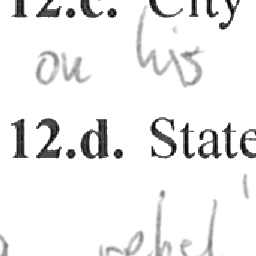 12.c. City
on his
12.d. State